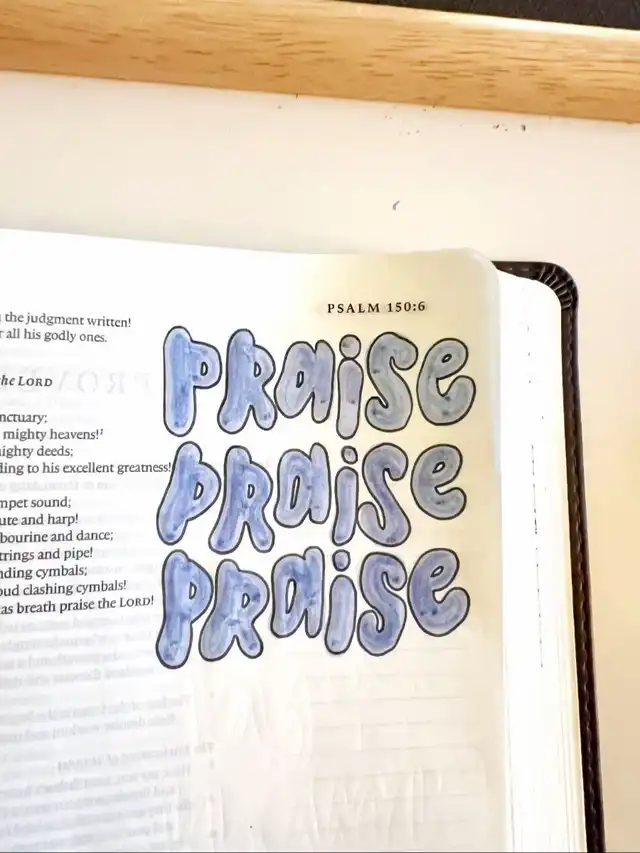 PSALM 150:6
the judgment written!
all his godly ones.
the LORD
mighty heavens!²
deeds;
to his excellent greatness!
sound;
and harp!
and dance;
and pipe!
cymbals;
clashing cymbals!
as breath praise the LORD!
praise
praise
praise